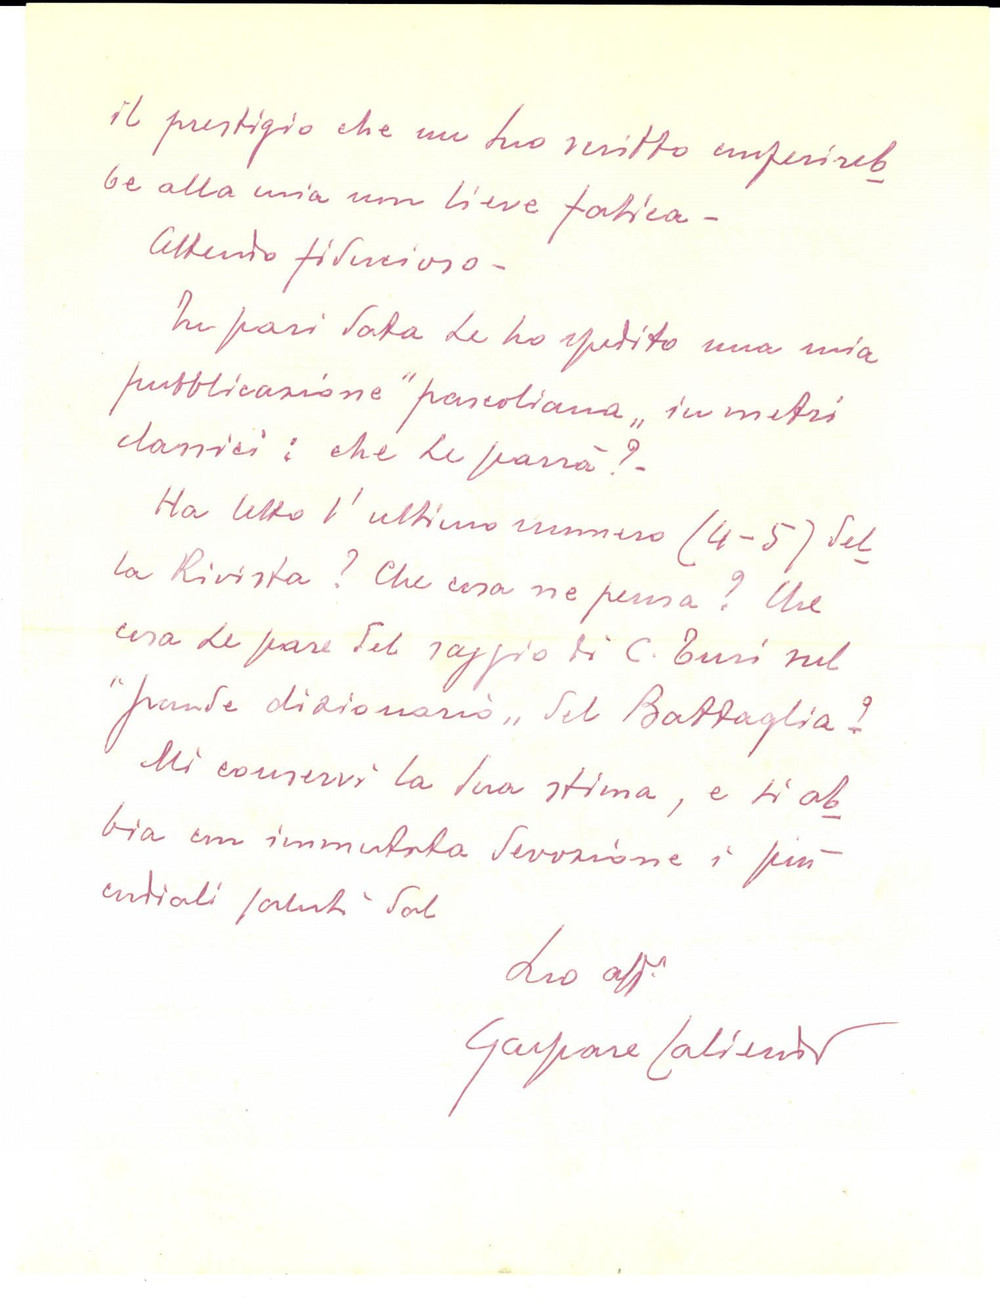 il prestigio che un Suo scritto conferireb
be alla mia non lieve fatica –
Attendo fiducioso –
In pari data Le ho spedito una mia
pubblicazione "pascoliana„ in metri
classici: che Le parrà? –
Ha letto l'ultimo numero (4-5) del
la Rivista? Che cosa ne pensa? Che
cosa Le pare del saggio di C. Turi sul
"grande dizionario„ del Battaglia?
Mi conservi la Sua stima, e si ab
bia con immutata devozione i più
cordiali saluti dal
Suo aff.
Gaspare Caliendo